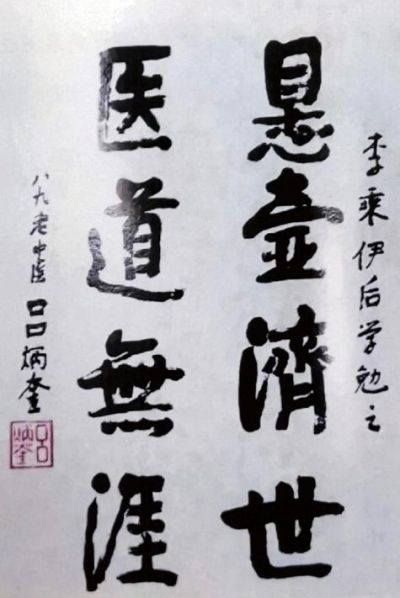 李乘伊后学勉之
悬壶濟世
医道無涯
八九老中医吕炳奎
吕炳奎